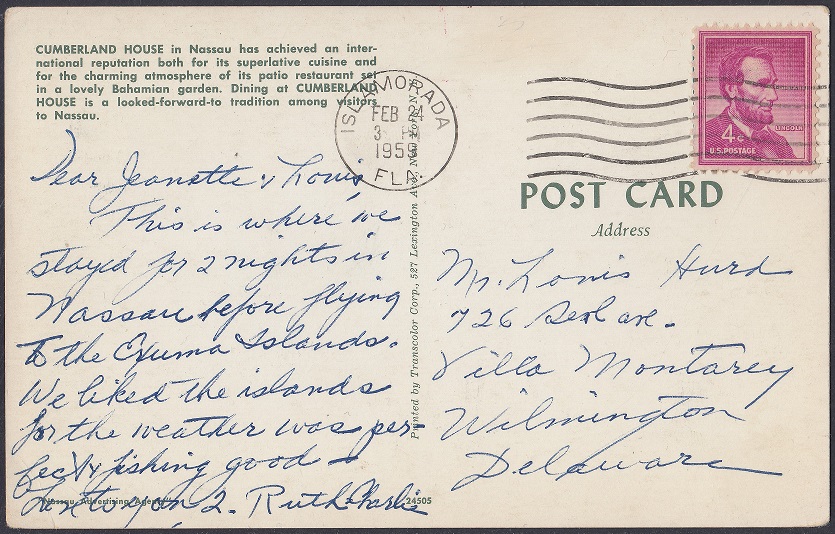 CUMBERLAND HOUSE in Nassau has achieved an inter-
national reputation both for its superlative cuisine and
for the charming atmosphere of its patio restaurant set
in a lovely Bahamian garden. Dining at CUMBERLAND
HOUSE is a looked-forward-to tradition among visitors
to Nassau.
Dear Jeanette & Louis,
This is where we
stayed for 2 nights in
Nassau before flying
to the Exuma Islands.
We liked the islands
for the weather was per-
fect & fishing good -
to you 2. Ruth & Charlie
"Nassau Advertising Agency"
24505
Printed by Transcolor Corp., 527 Lexington Ave., New York, N.Y.
ISLAMORADA
FEB 24
3 PM
1959
FLA.
4¢
LINCOLN
U.S. POSTAGE
POST CARD
Address
Mr. Louis Hurd
726 ave.
Villa Montarey
Wilmington
Delaware